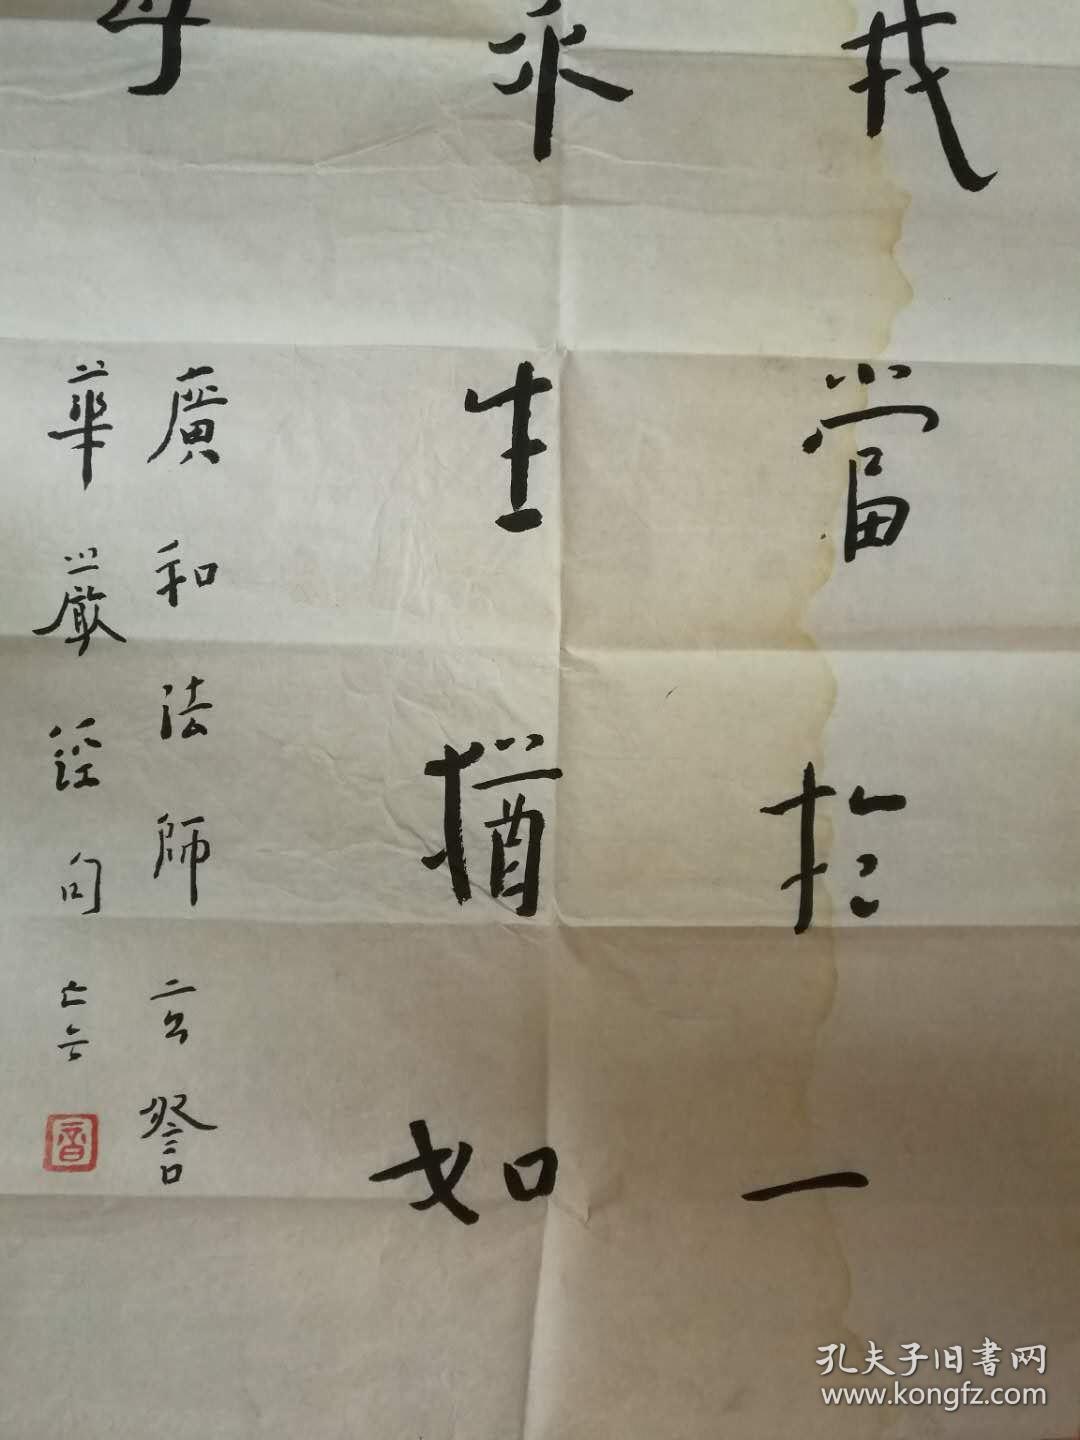 我當於一
衆生猶如
母
廣和法師玄譽
華嚴經句
孔夫子旧書网
www.kongfz.com